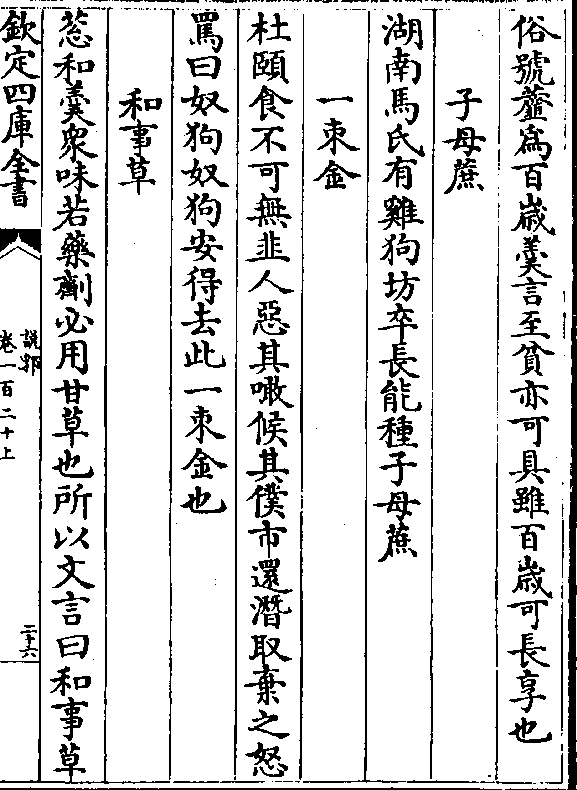 俗號虀為百歳羮言至貧亦可具雖百歳可長享也
子母蔗
湖南馬氏有雞狗坊卒長能種子母蔗
一束金
杜頤食不可無韭人惡其噉候其僕市還潛取棄之怒
罵曰奴狗奴狗安得去此一束金也
和事草
葱和羮衆味若藥劑必用甘草也所以文言曰和事草
欽定四庫全書
說郛
卷一百二十上
二十六